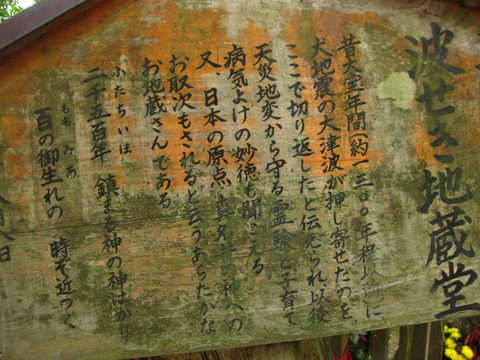 波せき地蔵堂
昔大宝年間(約一三〇〇年程以前に
大地震の大津波が押し寄せたのを
ここで切り返したと伝えられ以後
天災地変から守る霊験と子育て
病気よけの妙徳も聞こえる
又、日本の原点 真名井の神への
お取次もされると云うあらたかな
お地蔵さんである
ふたちいほ
二千五百年 鎮まる神の神はかり
もも みあ
百の御生れの 時ぞ近づく